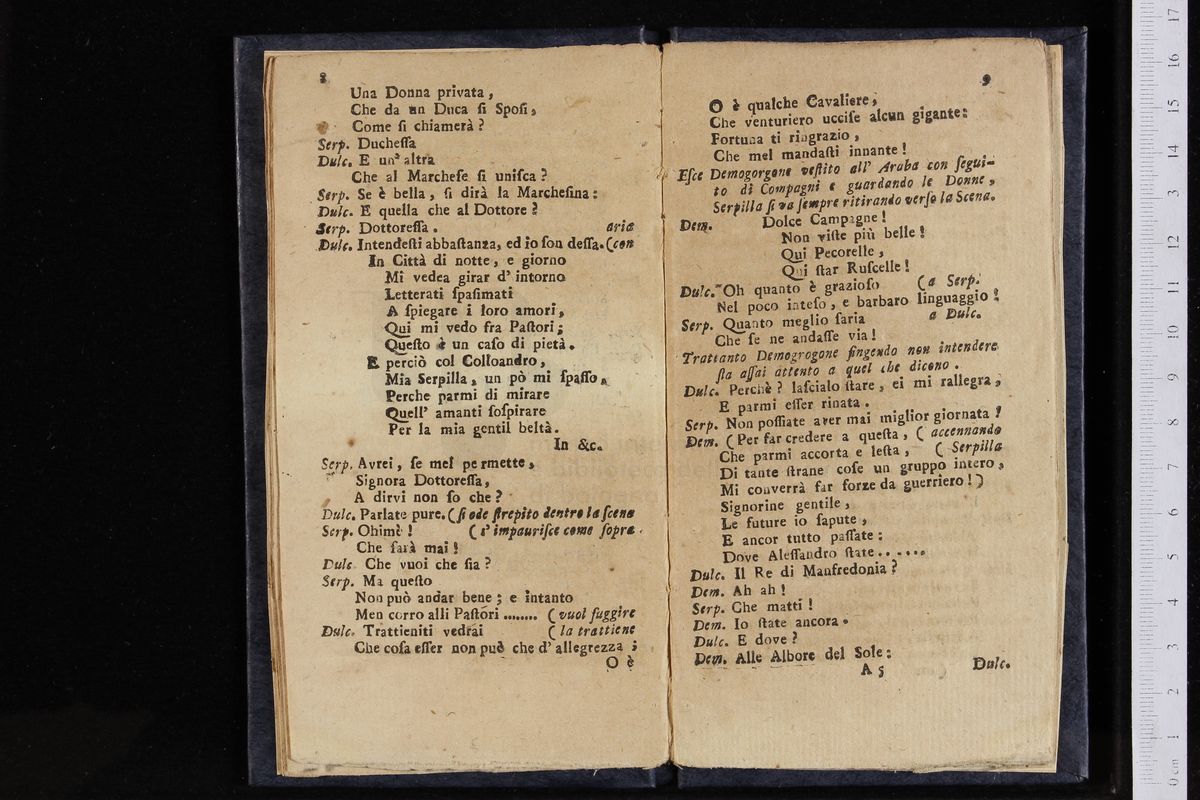 8
Una Donna privata,
Che da un Duca ſi Spoſi,
Come ſi chiamerà?
Serp. Ducheſſa
Dulc. E un' altra
Che al Marcheſe ſi uniſca?
Serp. Se è bella, ſi dirà la Marcheſina:
Dulc. E quella che al Dottore?
Serp. Dottoreſſa. aria
Dulc. Intendeſti abbaſtanza, ed io ſon deſſa. (con
In Città di notte, e giorno
Mi vedea girar d' intorno
Letterati ſpaſimati
A ſpiegare i loro amori,
Qui mi vedo fra Paſtori;
Queſto è un caſo di pietà.
E perciò col Colloandro,
Mia Serpilla, un pò mi ſpaſſo,
Perche parmi di mirare
Quell' amanti ſoſpirare
Per la mia gentil beltà.
In &c.
Serp. Avrei, ſe mel permette,
Signora Dottoreſſa,
A dirvi non ſo che?
Dulc. Parlate pure. (ſi ode ſtrepito dentro la ſcena
Serp. Ohimè! (s' impauriſce come ſopra.
Che ſarà mai!
Dulc. Che vuoi che ſia?
Serp. Ma queſto
Non può andar bene; e intanto
Men corro alli Paſtori ........ (vuol fuggire
Dulc. Trattieniti vedrai (la trattiene
Che coſa eſſer non può che d' allegrezza;
O è
9
O è qualche Cavaliere,
Che venturiero ucciſe alcun gigante:
Fortuna ti ringrazio,
Che mel mandaſti innante!
Eſce Demogorgone veſtito all' Araba con ſegui-
to di Compagni e guardando le Donne,
Serpilla ſi va ſempre ritirando verſo la Scena.
Dem. Dolce Campagne!
Non viſte più belle!
Qui Pecorelle,
Qui ſtar Ruſcelle!
Dulc. Oh quanto è grazioſo (a Serp.
Nel poco inteſo, e barbaro linguaggio!
Serp. Quanto meglio ſaria a Dulc.
Che ſe ne andaſſe via!
Trattanto Demogrogone fingendo non intendere
ſta aſſai attento a quel che dicono.
Dulc. Perchè? laſcialo ſtare, ei mi rallegra,
E parmi eſſer rinata.
Serp. Non poſſiate aver mai miglior giornata!
Dem. (Per far credere a queſta, (accennando
Che parmi accorta e leſta, (Serpilla
Di tante ſtrane coſe un gruppo intero,
Mi converrà far forze da guerriero!)
Signorine gentile,
Le future io ſapute,
E ancor tutto paſſate:
Dove Aleſſandro ſtate......
Dulc. Il Re di Manfredonia?
Dem. Ah ah!
Serp. Che matti!
Dem. Io ſtate ancora.
Dulc. E dove?
Dem. Alle Albore del Sole:
A 5 Dulc.
0 cm 1 2 3 4 5 6 7 8 9 10 11 12 13 14 15 16 17